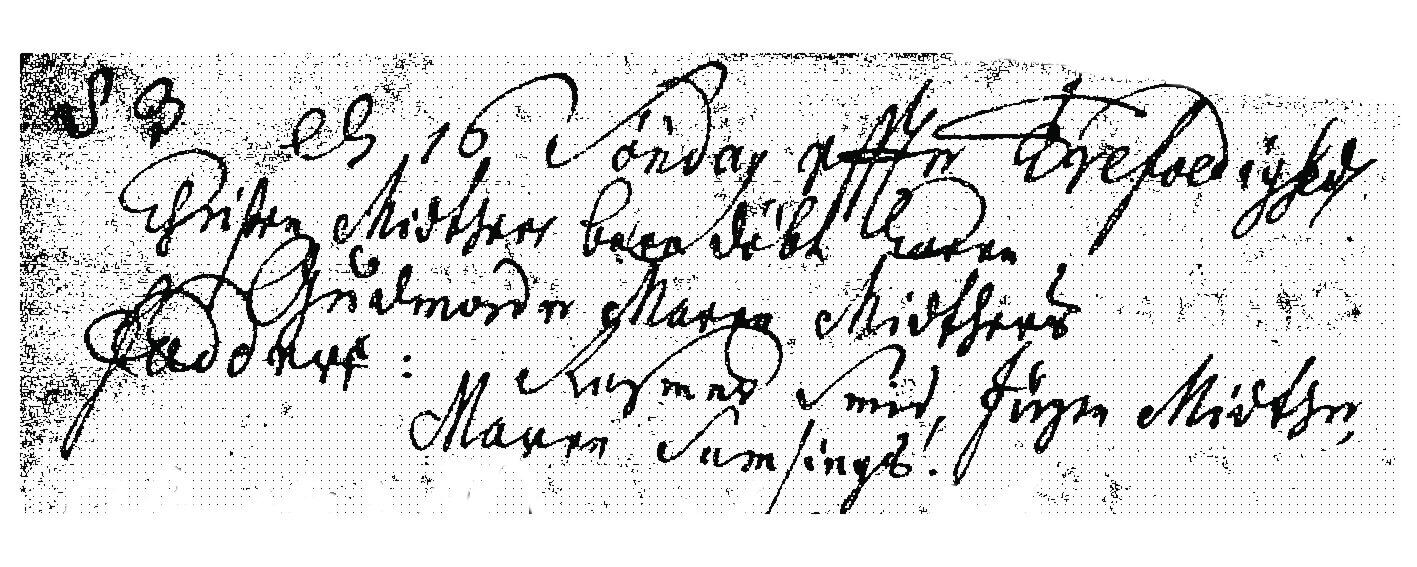 d. 16 Söndag effter Trefoldighed
Christen Midthers barn döbt Karen
Gudmoder Maren Midthers
Faddere: Rasmus Smid, Jürgen Midther,
Maren Samsings.